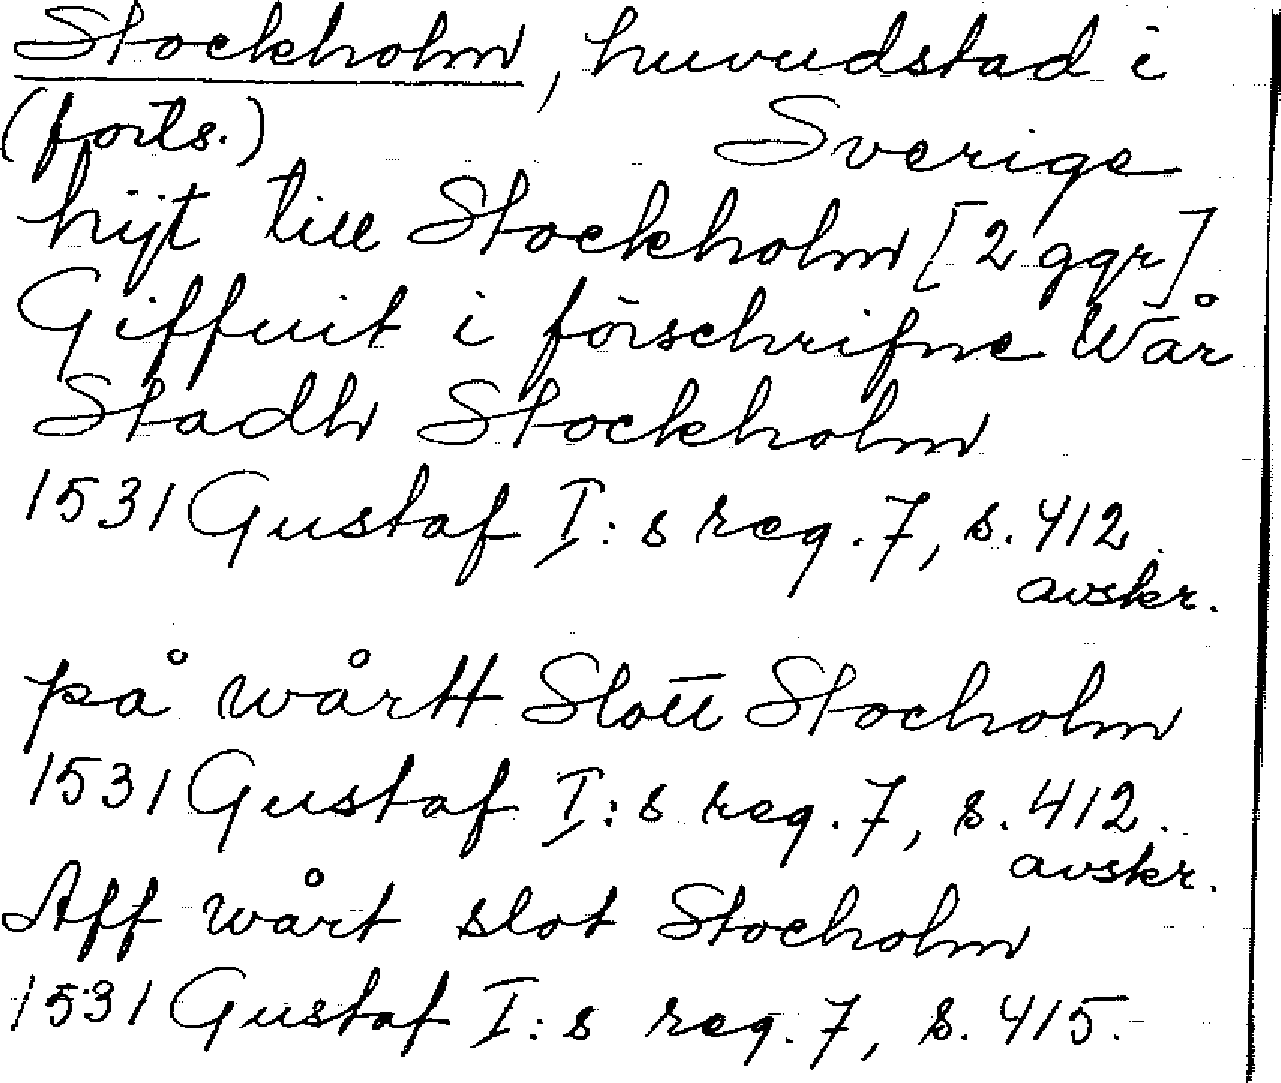 Stockholm, huvudstad i
(forts.) Sverige
hijt till Stockholm [2 ggr]
Giffuit i förschrifne Wår
Stadh Stockholm
1531 Gustaf I:s reg. 7, s. 412.
avskr.
på wårtt Slott Stocholm
1531 Gustaf I:s reg. 7, s. 412.
avskr.
Aff wårt slot Stocholm
1531 Gustaf I:s reg. 7, s. 415.